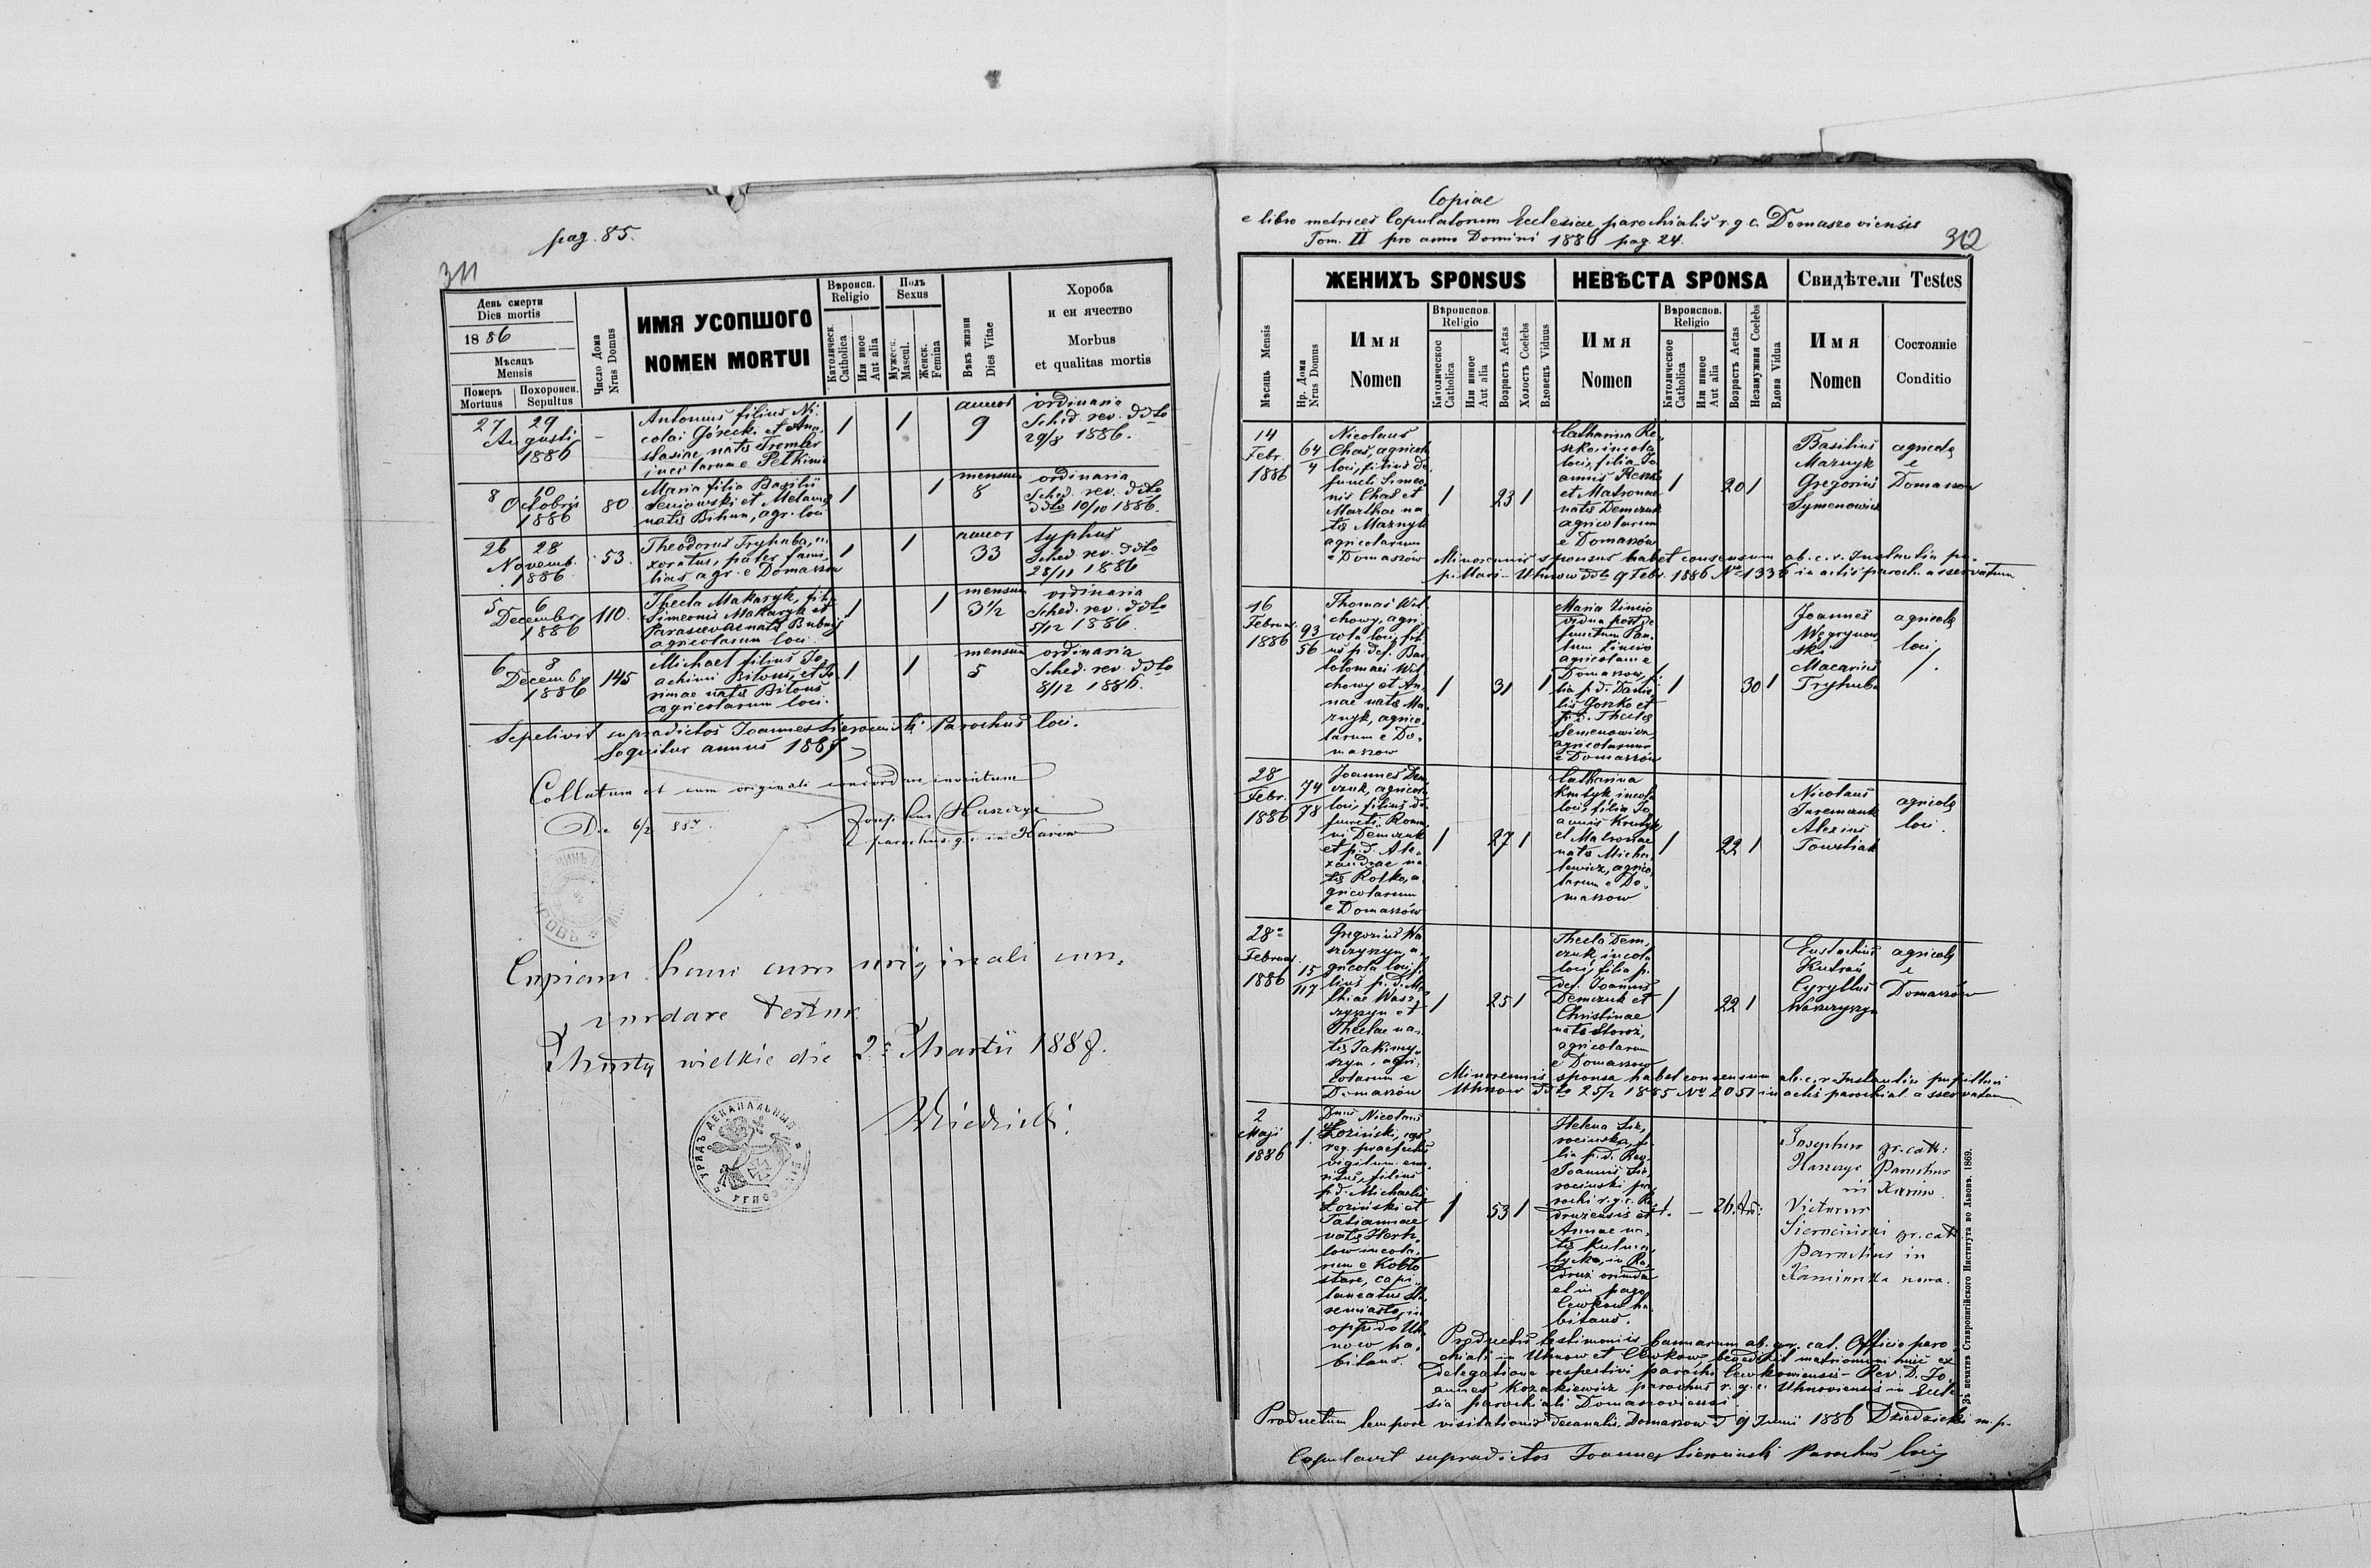 pag. 85.
311
День смерти
Dies mortis
1886
Мѣсяцъ
Mensis
Померъ
Mortuus
Похоронен.
Sepultus
Число Дома
Nrus Domus
ИМЯ УСОПШОГО
NOMEN MORTUI
Вѣроисп.
Religio
Католическ.
Catholica
Или иное
Aut alia
Полъ
Sexus
Мужеск.
Mascul.
Женск.
Femina
Вѣкъ жизни
Dies Vitae
Хороба
и еи ячество
Morbus
et qualitas mortis
27 29
Augusti
1886
–
Antonius filius Ni-
colai Górecki et Ana-
stasiae natae
incolarum e Petkinie
1 1
annos
9
ordinaria
Sched. rev. ddto
29/8 1886.
8 10
Octobris
1886
80
Maria filia Basilii
Seniowski et Melaniae
natae Bihun, agr. loci
1 1
mensium
8
ordinaria
Sched. rev. ddto
ddto 10/10 1886.
26 28
Novemb.
1886
53.
Theodorus Tryhuba, u-
xoratus, pater fami-
lias agr. e Domaszow
1 1
annos
33
typhus
Sched. rev. ddto
28/11 1886
5 6
Decembr.
1886
110.
Thecla Makaryk, filia
Simeonis Makaryk et
Parascevae natae Bubnij
agricolarum loci.
1 1
mensium
3 1/2
ordinaria
Sched. rev. ddto
5/12 1886.
6 8
Decemb.
1886
145
Michael filius Jo-
achimi Bitous, et
natae Bitous
agricolarum loci.
1 1
mensium
5
ordinaria
Sched. rev. ddto
8/12 1886.
Sepelivit supradictos Joannes Sierocinski Parochus loci.
Sequitur annus 1887
Collatum et cum originali concordare inventum
Die 6/2 887.
Josephus Huszczyc
parochus g.c. in Karow
Copiam hanc cum originali con-
cordare testor
Mosty wielkie die 2. Martii 1888.
Dziedzicki.
УРЯДЪ ДЕКАНАЛЬНЫЙ
Copiae
e libro metrices Copulatorum Ecclesiae parochialis r.g.c. Domaszoviensis
Tom. II pro anno Domini 1886 pag. 24.
312
ЖЕНИХЪ SPONSUS
НЕВѢСТА SPONSA
Свидѣтели Testes
Мѣсяць Mensis
Нр. Дома
Nrus Domus
Имя
Nomen
Вѣроиспов.
Religio
Католическое
Catholica
Или иное
Aut alia
Возрастъ Aetas
Холостъ Coelebs
Вдовецъ Viduus
Имя
Nomen
Вѣроиспов.
Religio
Католическое
Catholica
Или иное
Aut alia
Возрастъ Aetas
Незамужная Coelebs
Вдова Vidua
Имя
Nomen
Состояніе
Conditio
14
Febr.
1886
64
4
Nicolaus
Chaś, agricola
loci, filius de-
functi Simeo-
nis Chaś et
Marthae na-
tae Maznyk
agricolarum
e Domaszów
1 23 1
Catharina Re-
szko, incola
loci, filia Jo-
annis Reszko
et Matronae
natae Demczuk
agricolarum
e Domaszów
1 20 1
Basilius
Maznyk
Gregorius
Symenowicz
agricolae
e
Domaszow
Minorennis sponsus habet consensum ab. c.r. Instantia pu-
pillari – Uhnow ddto 9 Febr. 1886 No 1336 in actis paroch. asservatum
16
Februar.
1886
93
56
Thomas Wil-
chowy, agri-
cola loci, fili-
us p. def. Bar-
tolomaei Wil-
chowy et An-
nae natae Ma-
znyk, agrico-
larum e Do-
maszow
1 31 1
Maria Zincio
vidua post de-
functum Pau-
lum Zincio
agricolam e
Domaszow, fi-
lia p.d. Danie-
lis Goszko et
p.d. Theclae
Semenowicz,
agricolarum
e Domaszów
1 30 1
Joannes
Węgrynow-
ski
Macarius
Tryhuba
agricolae
loci
28
Febr.
1886
74
78
Joannes Dem-
czuk, agricola
loci, filius de-
functi Roma-
ni Demczuk
et p.d. Ale-
xandrae na-
tae Rotko, a-
gricolarum
e Domaszów
1 27 1
Catharina
Krutyk incola
loci, filia Jo-
annis Krutyk
et Matronae
natae Micha-
lewicz, agrico-
larum e Do-
maszow
1 22 1
Nicolaus
Jaremczuk
Alexius
Towstiak
agricolae
loci.
28
Februar.
1886
15
117
Gregorius Wa-
szczyszyn, a-
gricola loci, fi-
lius p.d. Ma-
thiae Wasz-
czyszyn et
Theclae na-
tae Jakimy-
szyn, agri-
colarum e
Domaszów
1 25 1
Thecla Dem-
czuk incola
loci, filia p.
def. Joannis
Demczuk et
Christinae
natae Storoż,
agricolarum
e Domaszow
1 22 1
Eustachius
Kutran
Cyryllus
Waszczyszyn
agricolae
e
Domaszów
Minorennis sponsa habet consensum ab. c.r. Instantia pupillari
Uhnow ddto 25/2 1885 No 2051 in actis parochial. asservatum
2
Maji
1886
1.
Dnus Nicolaus
Łoziński,
reg. praefectus
vigilum eme-
ritus, filius
p.d. Michaelis
Łoziński et
Tatiannae
natae
incola-
rum e Kobło
stare, capi-
taneatus Sta-
remiasto, in
oppido Uh-
now ha-
bitans.
1 53 1
Helena Sie-
rocinska, fi-
lia p.d. Rev.
Joannis Sie-
rocinski pa-
rochi r.g.c. Ra-
druzensis et
Annae na-
tae
in Ra-
druż oriunda
et in pago
Cewkow ha-
bitans.
1. – 26.
Josephus
Huszczyc
gr.cath:
Parochus
in Karow
Victorus
Sierociński gr.cath
Parochus in
Kamionka nowa.
Productis testimoniis bannorum ab. gr. cat. Officio paro-
chiali in Uhnow et Cewkow, benedixit matrimonium huic ex
delegatione respectivi parochi Cewkoviensis – Rev. D. Jo-
annes Kozakiewicz parochus r.g.c. Uhnoviensis in Eccle-
sia parochiali Domaszoviensi.
Productum tempore visitationis decanalis Domaszow d 9 Junii 1886 Dziedzicki m.p.
Copulavit supradictos Joannes Sierocinski Parochus loci
Зъ печатнѣ Ставропигійского Института во Львовѣ. 1869.